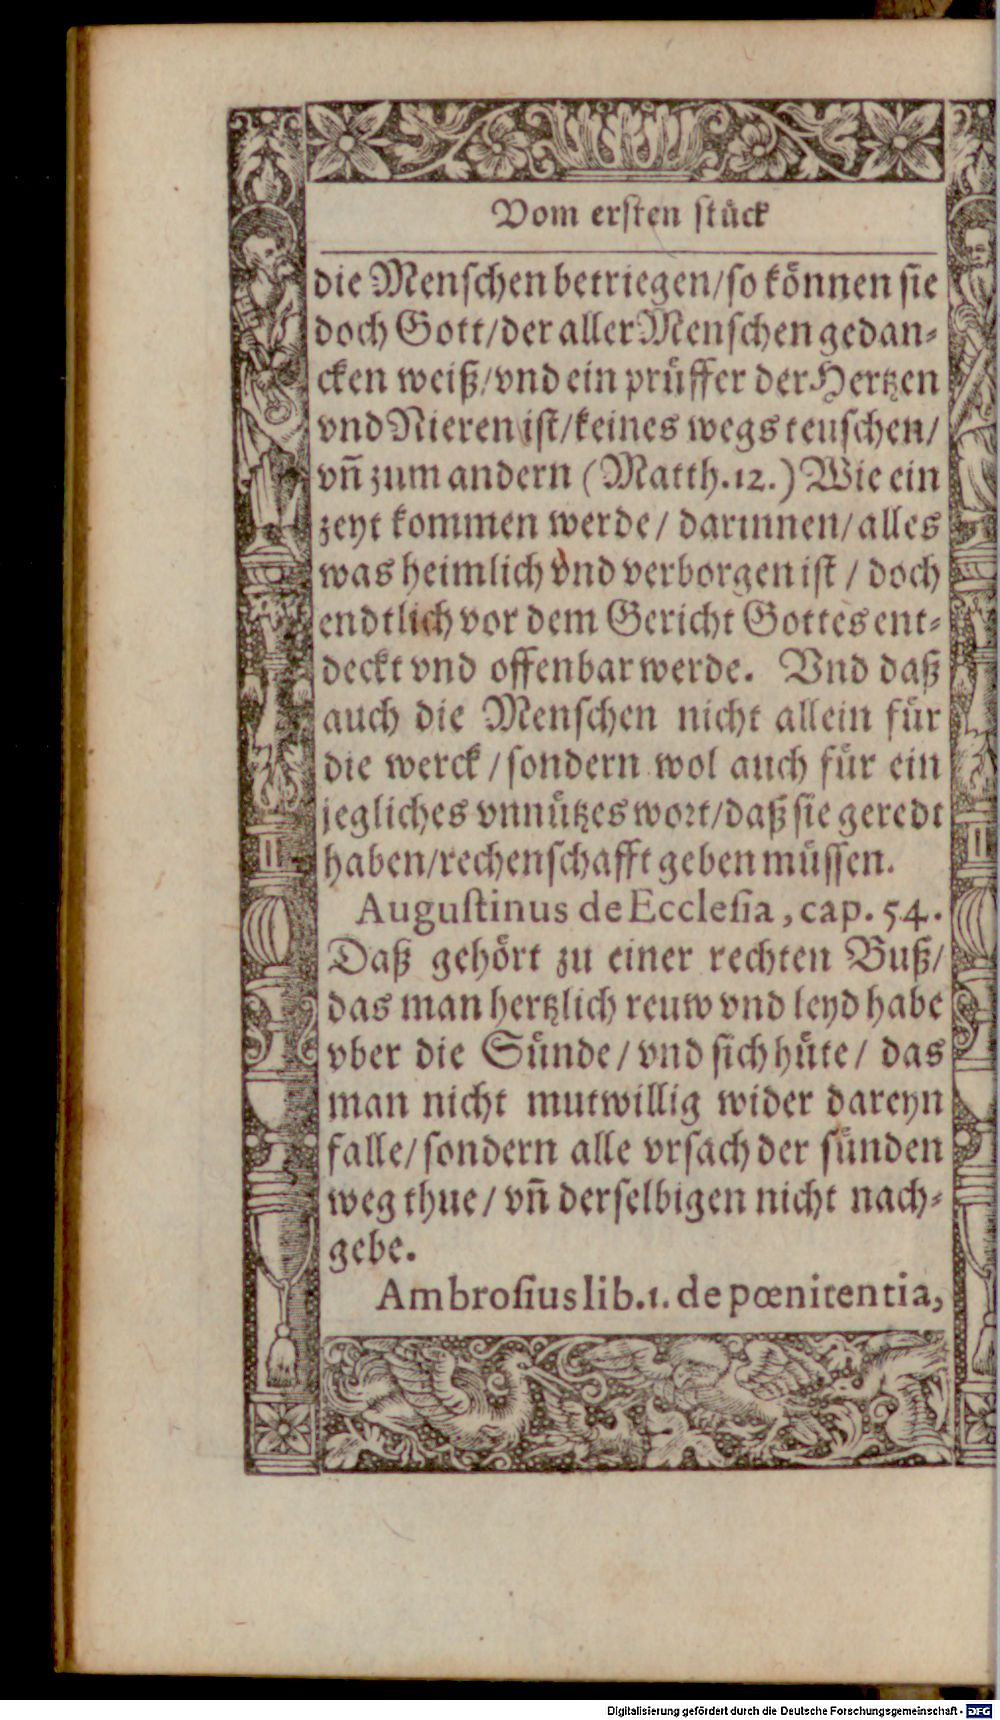 Vom ersten stück
die Menschen betriegen/so können sie
doch Gott/der aller Menschen gedan-
cken weiß/vnd ein prüffer der Hertzen
vnd Nieren ist/keines wegs teuschen/
vñ zum andern (Matth.12.) Wie ein
zeyt kommen werde/ darinnen/alles
was heimlich vnd verborgen ist / doch
endtlich vor dem Gericht Gottes ent-
deckt vnd offenbar werde. Vnd daß
auch die Menschen nicht allein für
die werck /sondern wol auch für ein
jegliches vnnützes wort/daß sie geredt
haben/rechenschafft geben müssen.
Augustinus de Ecclesia, cap. 54.
Daß gehört zu einer rechten Buß/
das man hertzlich reuw vnd leyd habe
vber die Sünde/ vnd sich hüte/ das
man nicht mutwillig wider dareyn
falle/sondern alle vrsach der sünden
weg thue/ vñ derselbigen nicht nach-
gebe.
Ambrosius lib.1. de pœnitentia,
Digitalisierung gefördert durch die Deutsche Forschungsgemeinschaft - DFG